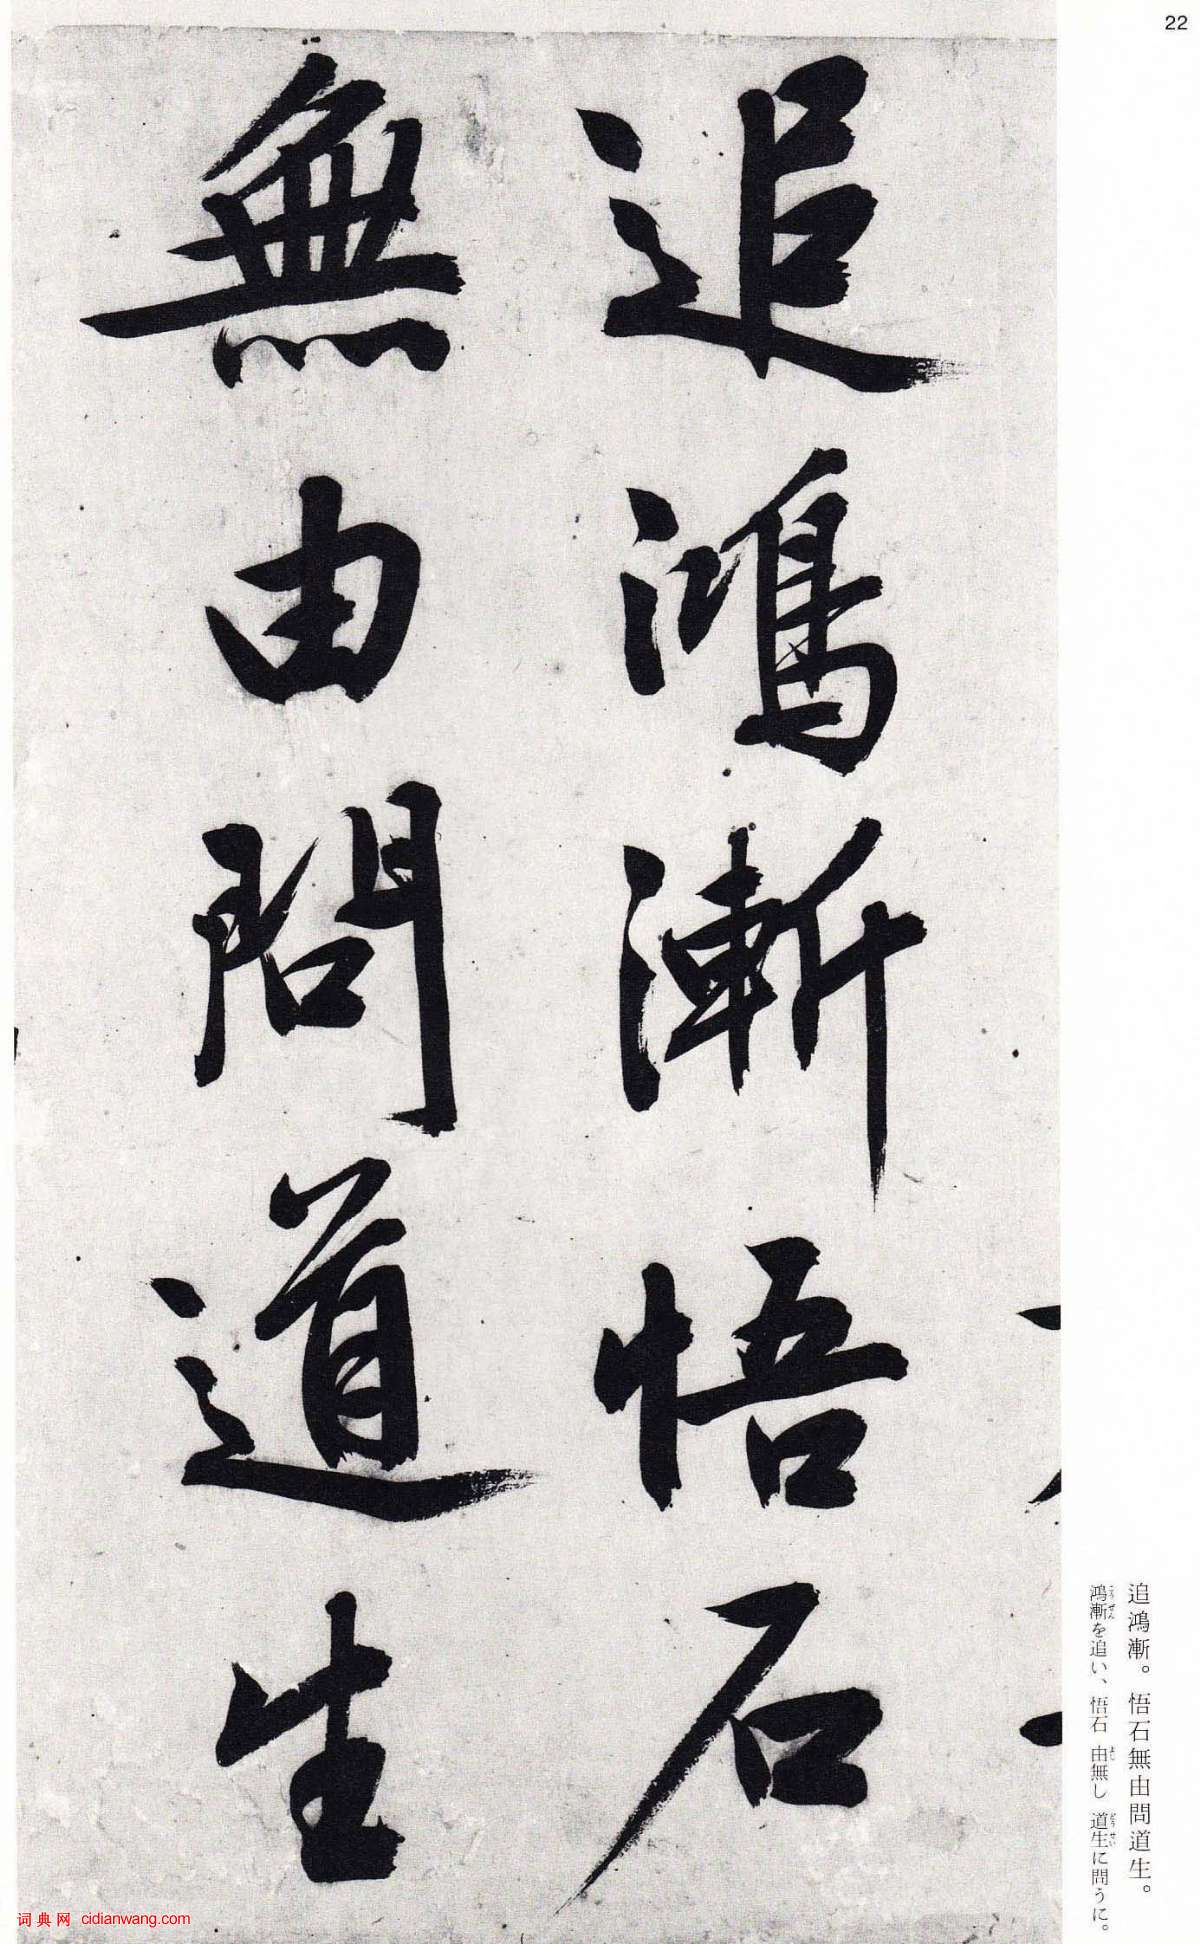 22
追鴻漸悟石
無由問道生
追鴻漸。悟石無由問道生。
鴻漸を追い、悟石 由無し 道生に問うに。
词典网 cidianwang.com